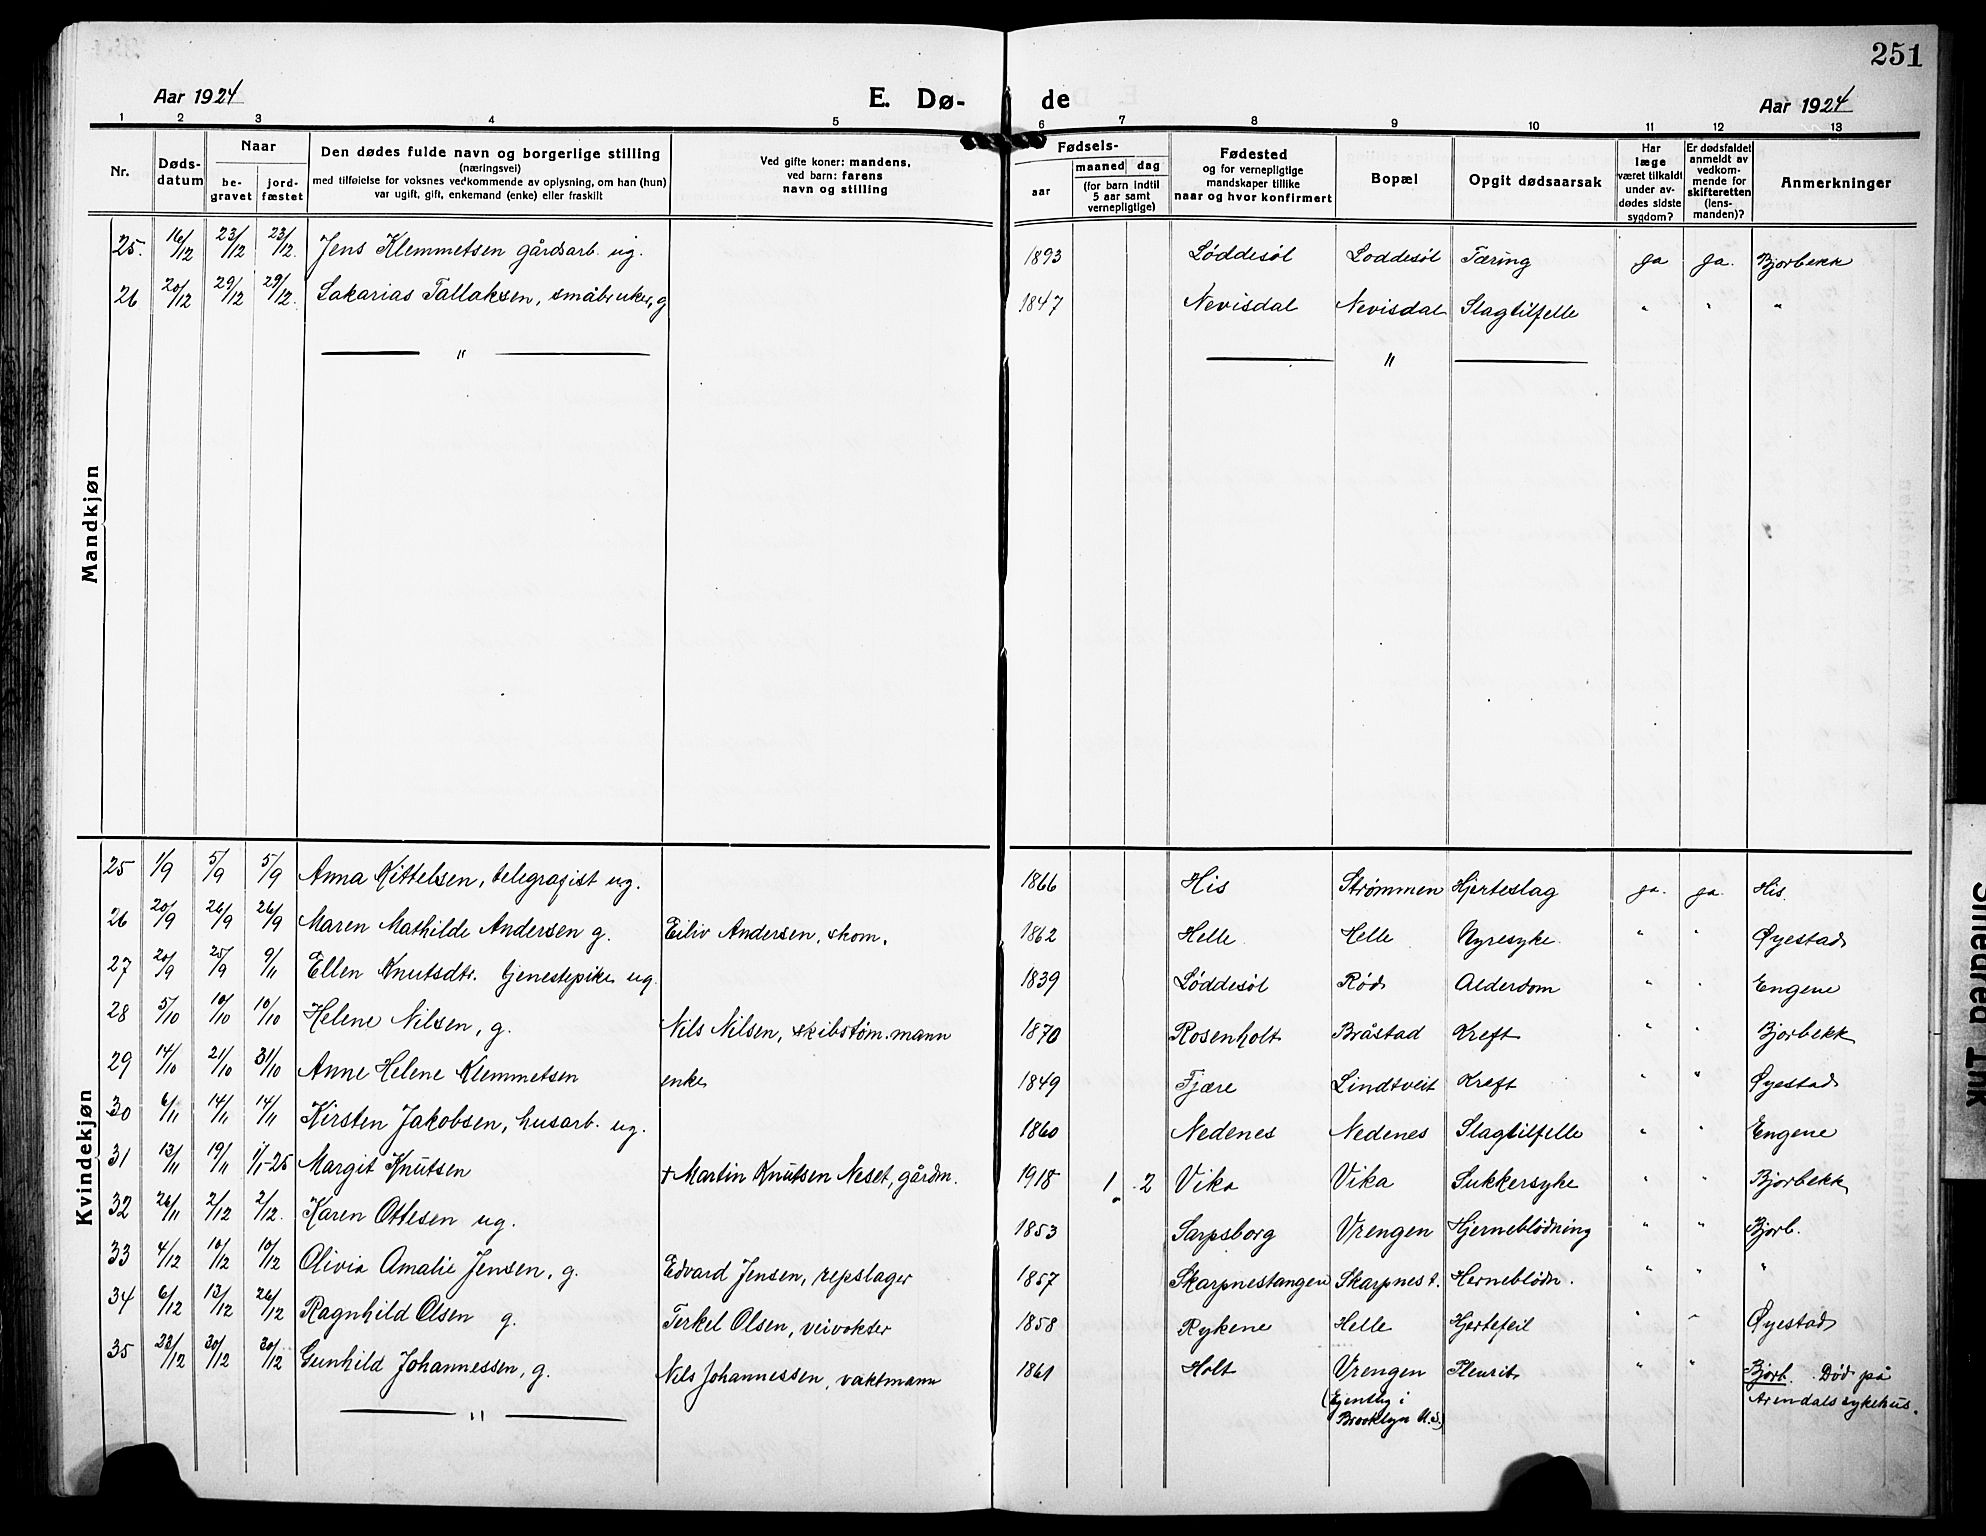 251
Aar 1924 E. Dø- de Aar 1924
1 2 3 4 5 6 7 8 9 10 11 12 13
Nr. Døds-datum Naar be-gravet jord-fæstet Den dødes fulde navn og borgerlige stilling (næringsvei) med tilføielse for voksnes vedkommende av oplysning, om han (hun) var ugift, gift, enkemand (enke) eller fraskilt Ved gifte koner: mandens, ved barn: farens navn og stilling Fødsels- aar maaned dag (for barn indtil 5 aar samt vernepligtige) Fødested og for vernepligtige mandskaper tillike naar og hvor konfirmert Bopæl Opgit dødsaarsak Har læge været tilkaldt under av-dødes sidste sygdom? Er dødsfaldet anmeldt av vedkom-mende for skifteretten (lens-manden)? Anmerkninger
Mandkjøn
25. 16/12 23/12 23/12. Jens Klemmetsen gårdsarb. ug. 1893 Løddesøl Loddesøl Tæring ja ja. Bjorbekk
26 20/12 29/12 29/12. Sakarias Tallaksen, småbruker, g 1847 Nevisdal Nevisdal Slagtilfelle " " "
" "
Kvindekjøn
25 1/9 5/9 5/9 Anna Kittelsen, telegrafist ug. 1866 His Strømmen Hjerteslag ja. ja. His.
26 20/9 26/9 26/9 Maren Mathilde Andersen g. Eiliv Andersen, skom. 1862 Helle Helle Nyresyke. " " Øyestad
27 20/9 25/9 9/11 Ellen Knutsdtr. tjenestepike ug. 1839 Løddesøl Rød Alderdom " " Engene
28 5/10 10/10 10/10 Helene Nilsen, g. Nils Nilsen, skibstøm.mann 1870 Rosenholt Bråstad Kreft " " Bjorbekk
29 14/10 21/10 31/10 Anne Helene Klemmetsen enke 1849 Fjære Lindtveit Kreft " " Øyestad
30 6/11 14/11 14/11 Kirsten Jakobsen, husarb. ug. 1860 Nedenes Nedenes Slagtilfelle " " Engene
31 13/11 19/11 1/1-25 Margit Knutsen + Martin Knutsen Neset, gårdm. 1918 1 2 Vika Vika Sukkersyke " " Bjorbekk
32 26/11 2/12 2/12. Karen Ottesen ug. 1853 Sarpsborg Vrengen Hjerneblødning " " Bjorb.
33 4/12 10/12 10/12 Olivia Amalie Jensen, g. Edvard Jensen, repslager 1857 Skarpnestangen Skarpnest. Herneblødn. " " "
34 6/12 13/12 26/12 Ragnhild Olsen g. Terkel Olsen, veivokter 1858 Rykene Helle Hjertefeil " " Øyestad
35 23/12 30/12 30/12 Gunhild Johannessen, g. Nils Johannessen, vaktmann 1861 Holt Vrengen Pleurit " " Bjorb. Død på
(Egentlig i Arendals sykehus.
Brooklyn U.S.)
"